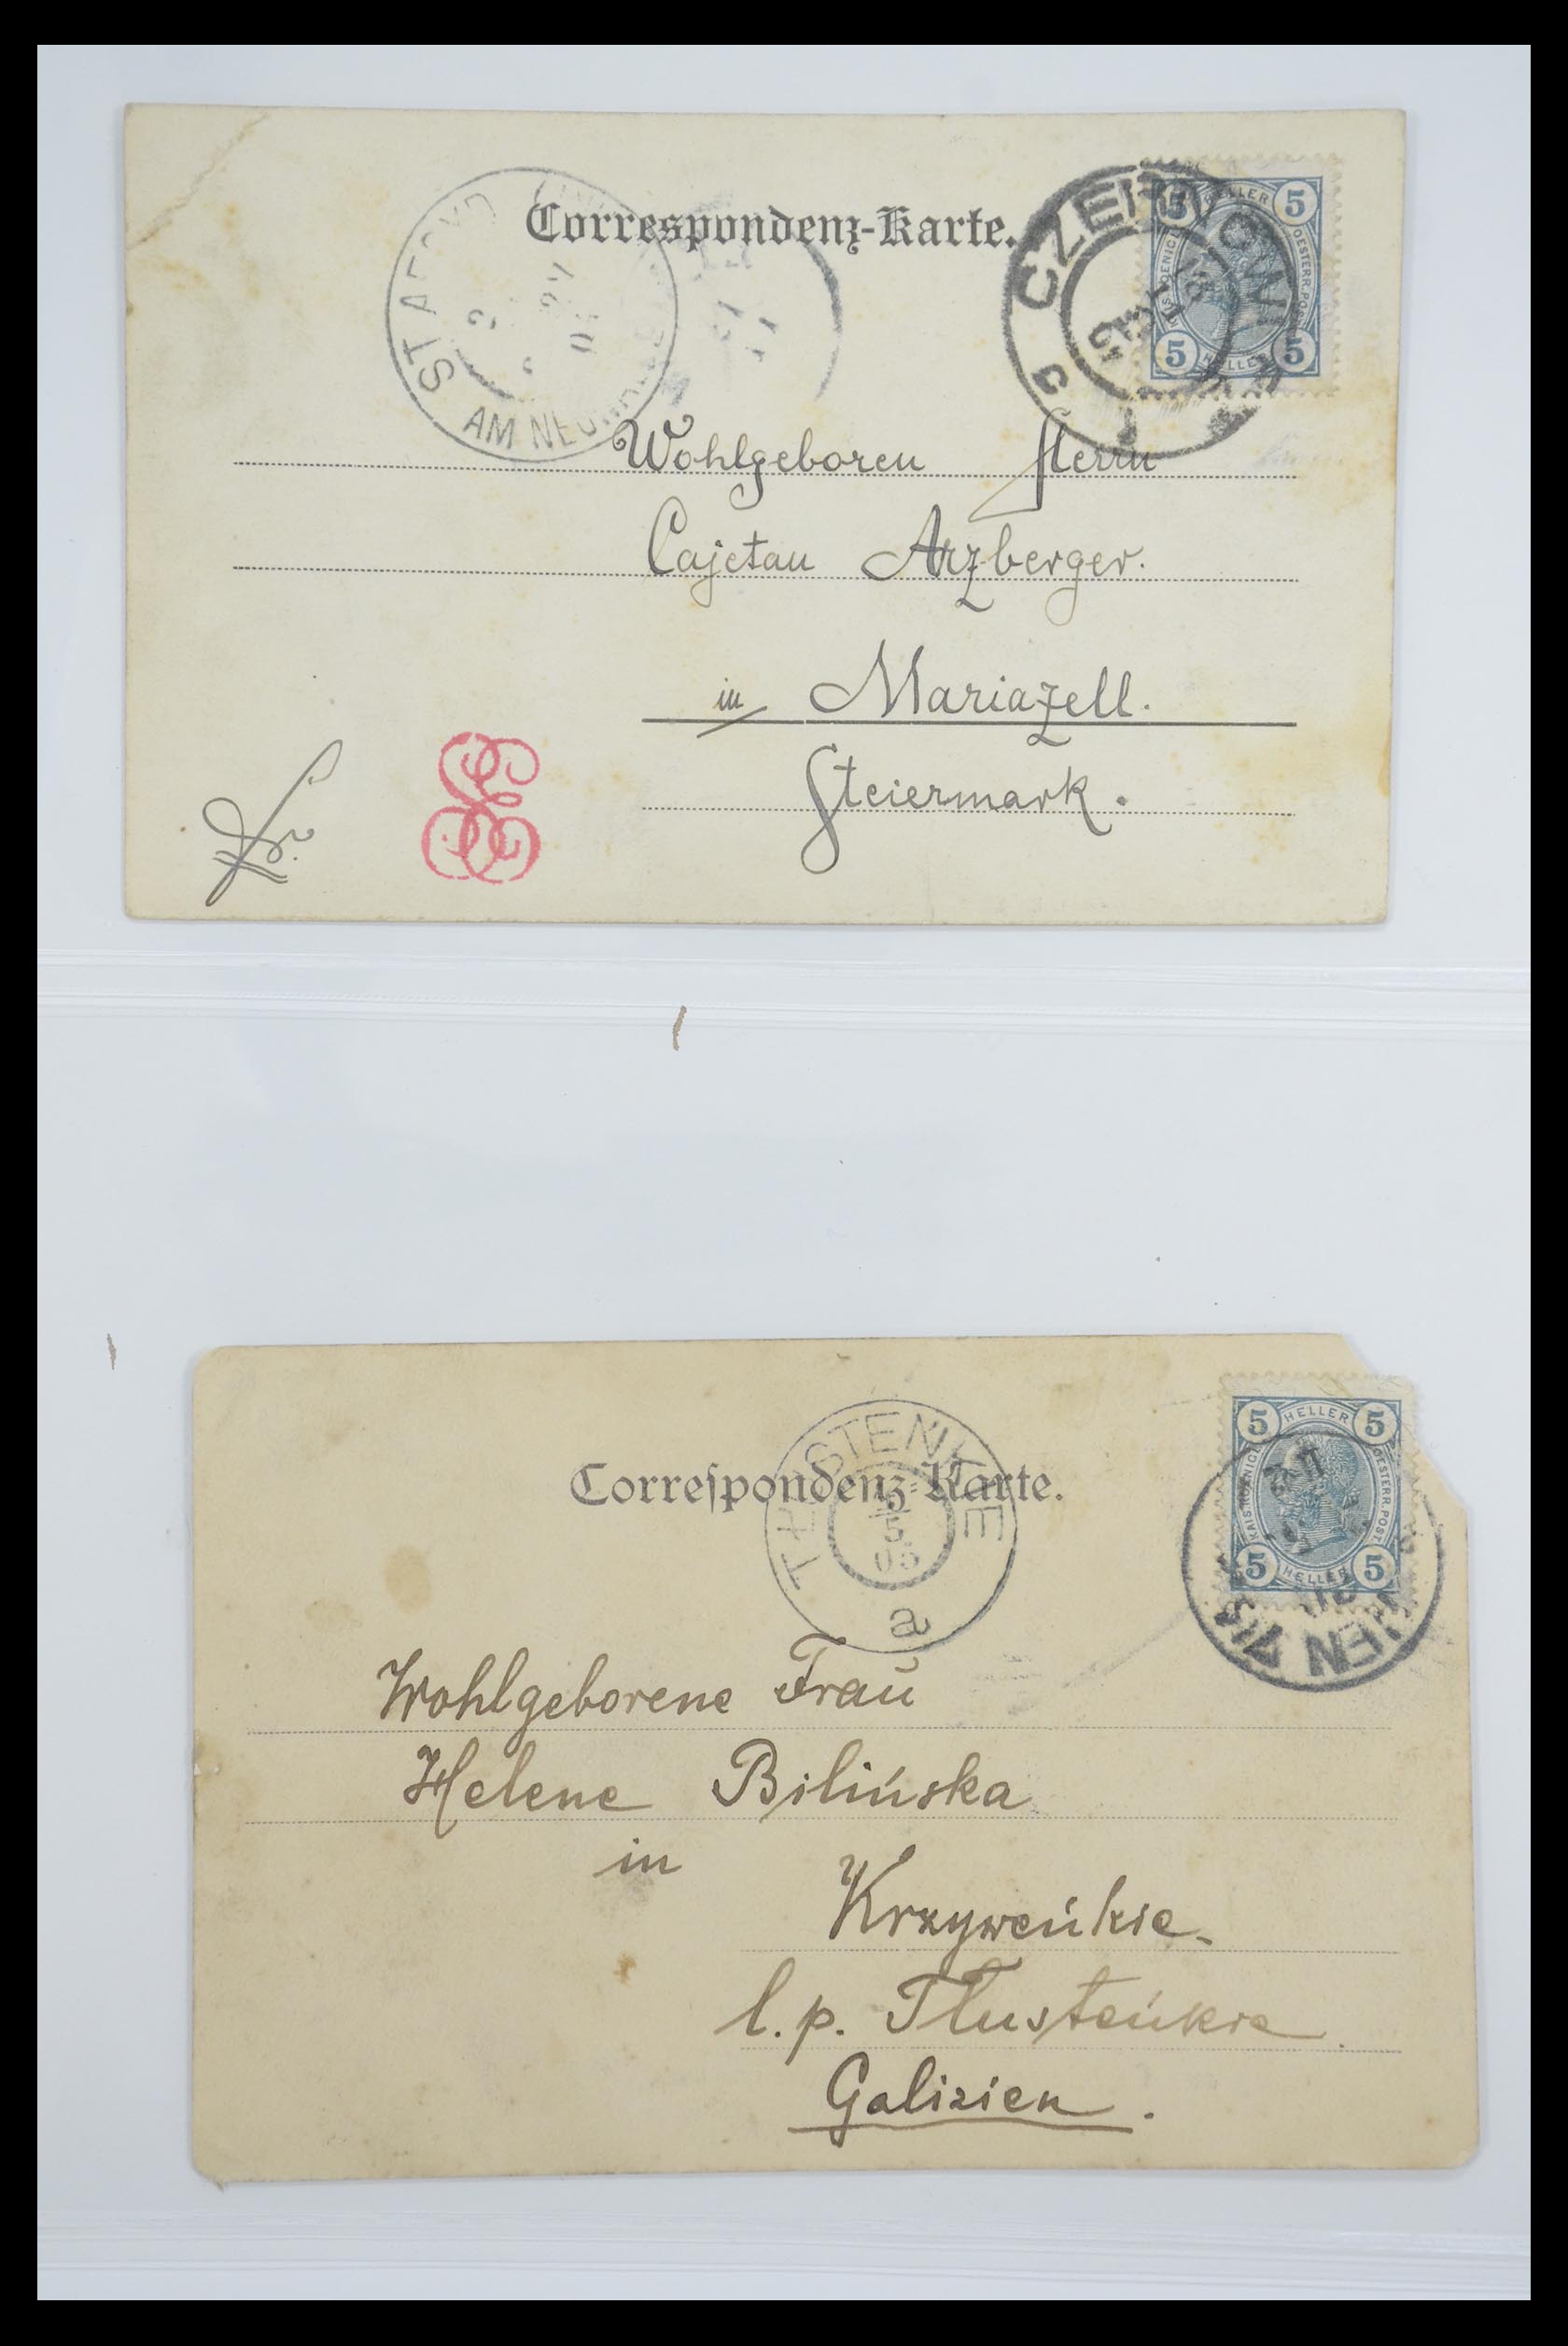 Correspondenz-Karte.
ST AEGYD
AM NEU
5 HELLER 5
OESTERR. POST
5 HELLER 5
Wohlgeboren Herrn
Cajetan Arzberger.
in Mariazell.
Steiermark.
Correſpondenz-Karte.
5
5
05
a
5 HELLER 5
KAIS. KOENIGL.
OESTERR. POST.
5 HELLER 5
WIEN
Wohlgeborene Frau
Helene Bilińska
in
Krzyweńkie.
l.p. Tłusteńkie
Galizien.